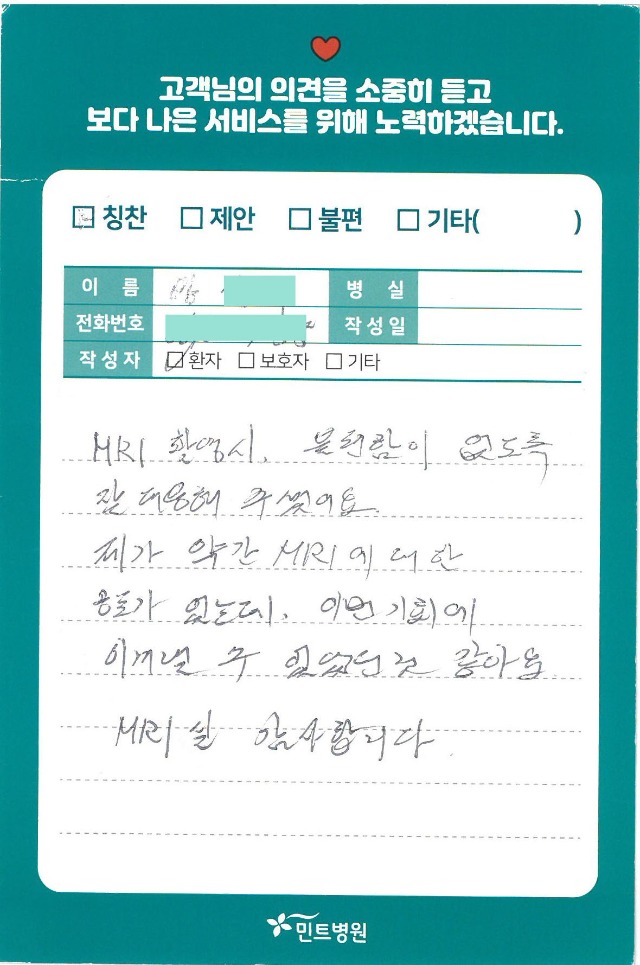 고객님의 의견을 소중히 듣고
보다 나은 서비스를 위해 노력하겠습니다.
칭찬 제안 불편 기타( )
이 름 병 실
전화번호 작성일
작성자 환자 보호자 기타
MRI 촬영시, 불편함이 없도록
잘 대응해 주셨어요.
제가 약간 MRI에 대한
공포가 있는데, 이번 기회에
이겨낼 수 있었던 것 같아요
MRI실 감사합니다.
민트병원